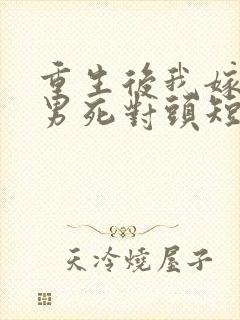 重生後我嫁
男死對頭短
天冷燒屋子